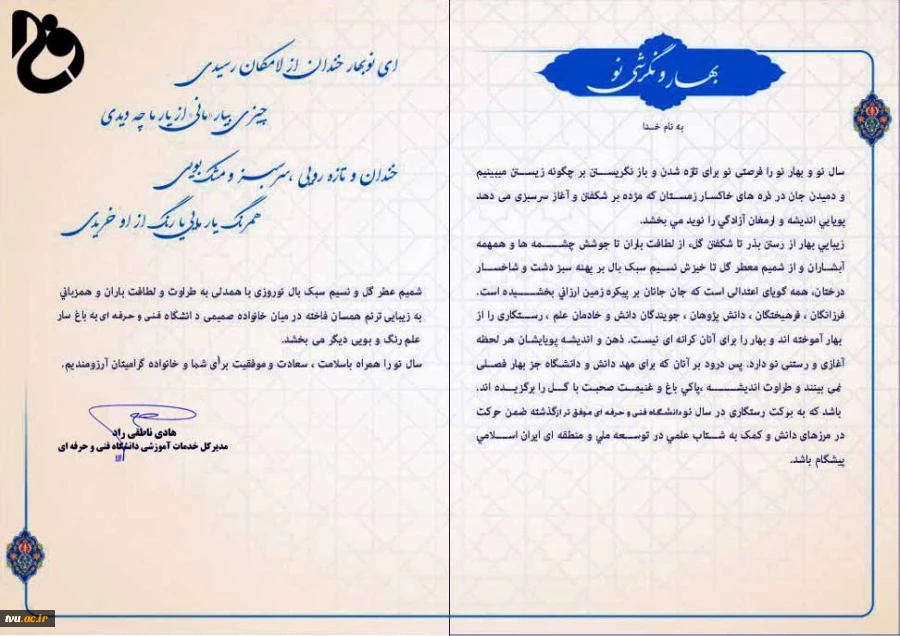 بهار و نگرشی نو
به نام خدا
سال نو و بهار نو را فرصتی نو برای تازه شدن و باز نگریستن بر چگونه زیستن میبینیم
و دمیدن جان در ذره های خاکسار زمستان که مژده بر شکفتن و آغاز سرسبزی می دهد
پویایی اندیشه و ارمغان آزادگي را نوید مي بخشد.
زیبایي بهار از رستن بذر تا شکفتن گل، از لطافت باران تا جوشش چشمه ها و همهمه
آبشاران و از شمیم معطر گل تا خیزش نسیم سبک بال بر پهنه سبز دشت و شاخسار
درختان، همه گویای اعتدالی است که جان جانان بر پیکره زمین ارزاني بخشیده است.
فرزانگان ، فرهیختگان ، دانش پژوهان ، جویندگان دانش و خادمان علم ، رستگاری را از
بهار آموخته اند و بهار را برای آنان کرانه ای نیست. ذهن و اندیشه پویایشان هر لحظه
آغازی و رستنی نو دارد. پس درود بر آنان که برای مهد دانش و دانشگاه جز بهار فصلی
نمی بینند و طراوت اندیشه ،پاکي باغ و غنیمت صحبت با گل را برگزیده اند.
باشد که به برکت رستگاری در سال نو دانشگاه فنی و حرفه ای موفق تر ازگذشته ضمن حرکت
در مرزهای دانش و کمک به شتاب علمي در توسعه ملي و منطقه ای ایران اسلامي
پیشگام باشد.
ای نوبهار خندان از لامکان رسیدی
چیزی بیار مانی از یار ما چه دیدی
خندان و تازه رویی ،سرسبز و مشک بویی
همرنگ یار مایی یا رنگ از او خریدی
شمیم عطر گل و نسیم سبک بال نوروزی با همدلی به طراوت و لطافت باران و همزبانی
به زیبایی ترنم همسان فاخته در میان خانواده صمیمی دانشگاه فنی و حرفه ای به باغ سار
علم رنگ و بویی دیگر می بخشد.
سال نو را همراه باسلامت ، سعادت و موفقیت برای شما و خانواده گرامیتان آرزومندیم.
هادی ناطقی راد
مدیرکل خدمات آموزشی دانشگاه فنی و حرفه ای
tvu.ac.ir